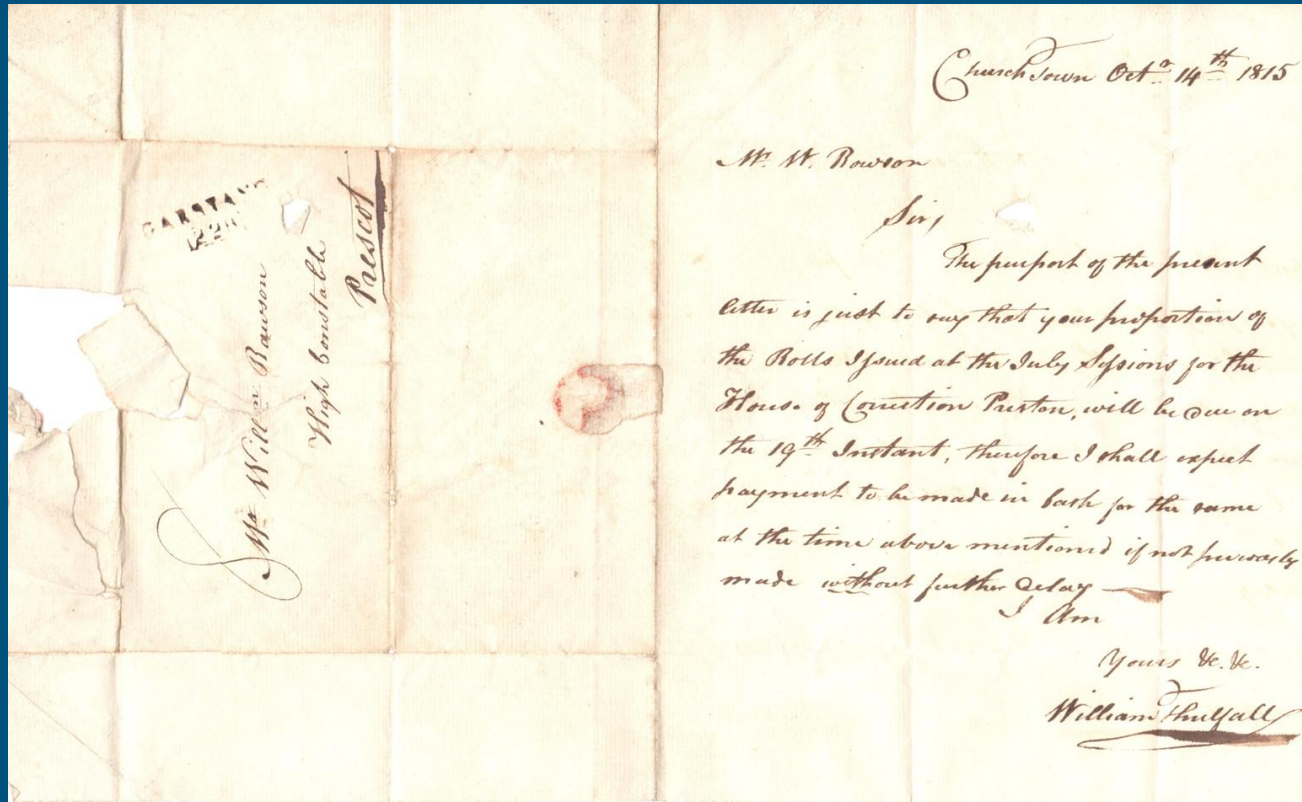 GARSTANG
229
Mr. Willm. Rawson
High Constable
Prescot
Churchtown Octr. 14th 1815
Mr. W. Rowson
Sir,
The purport of the present
letter is just to say that your proportion of
the Rolls Issued at the July Sessions for the
House of Correction Preston, will be due on
the 19th Instant, therefore I shall expect
payment to be made in Cash for the same
at the time above mentioned if not previously
made without further delay
I Am
Yours &c. &c.
William Threlfall